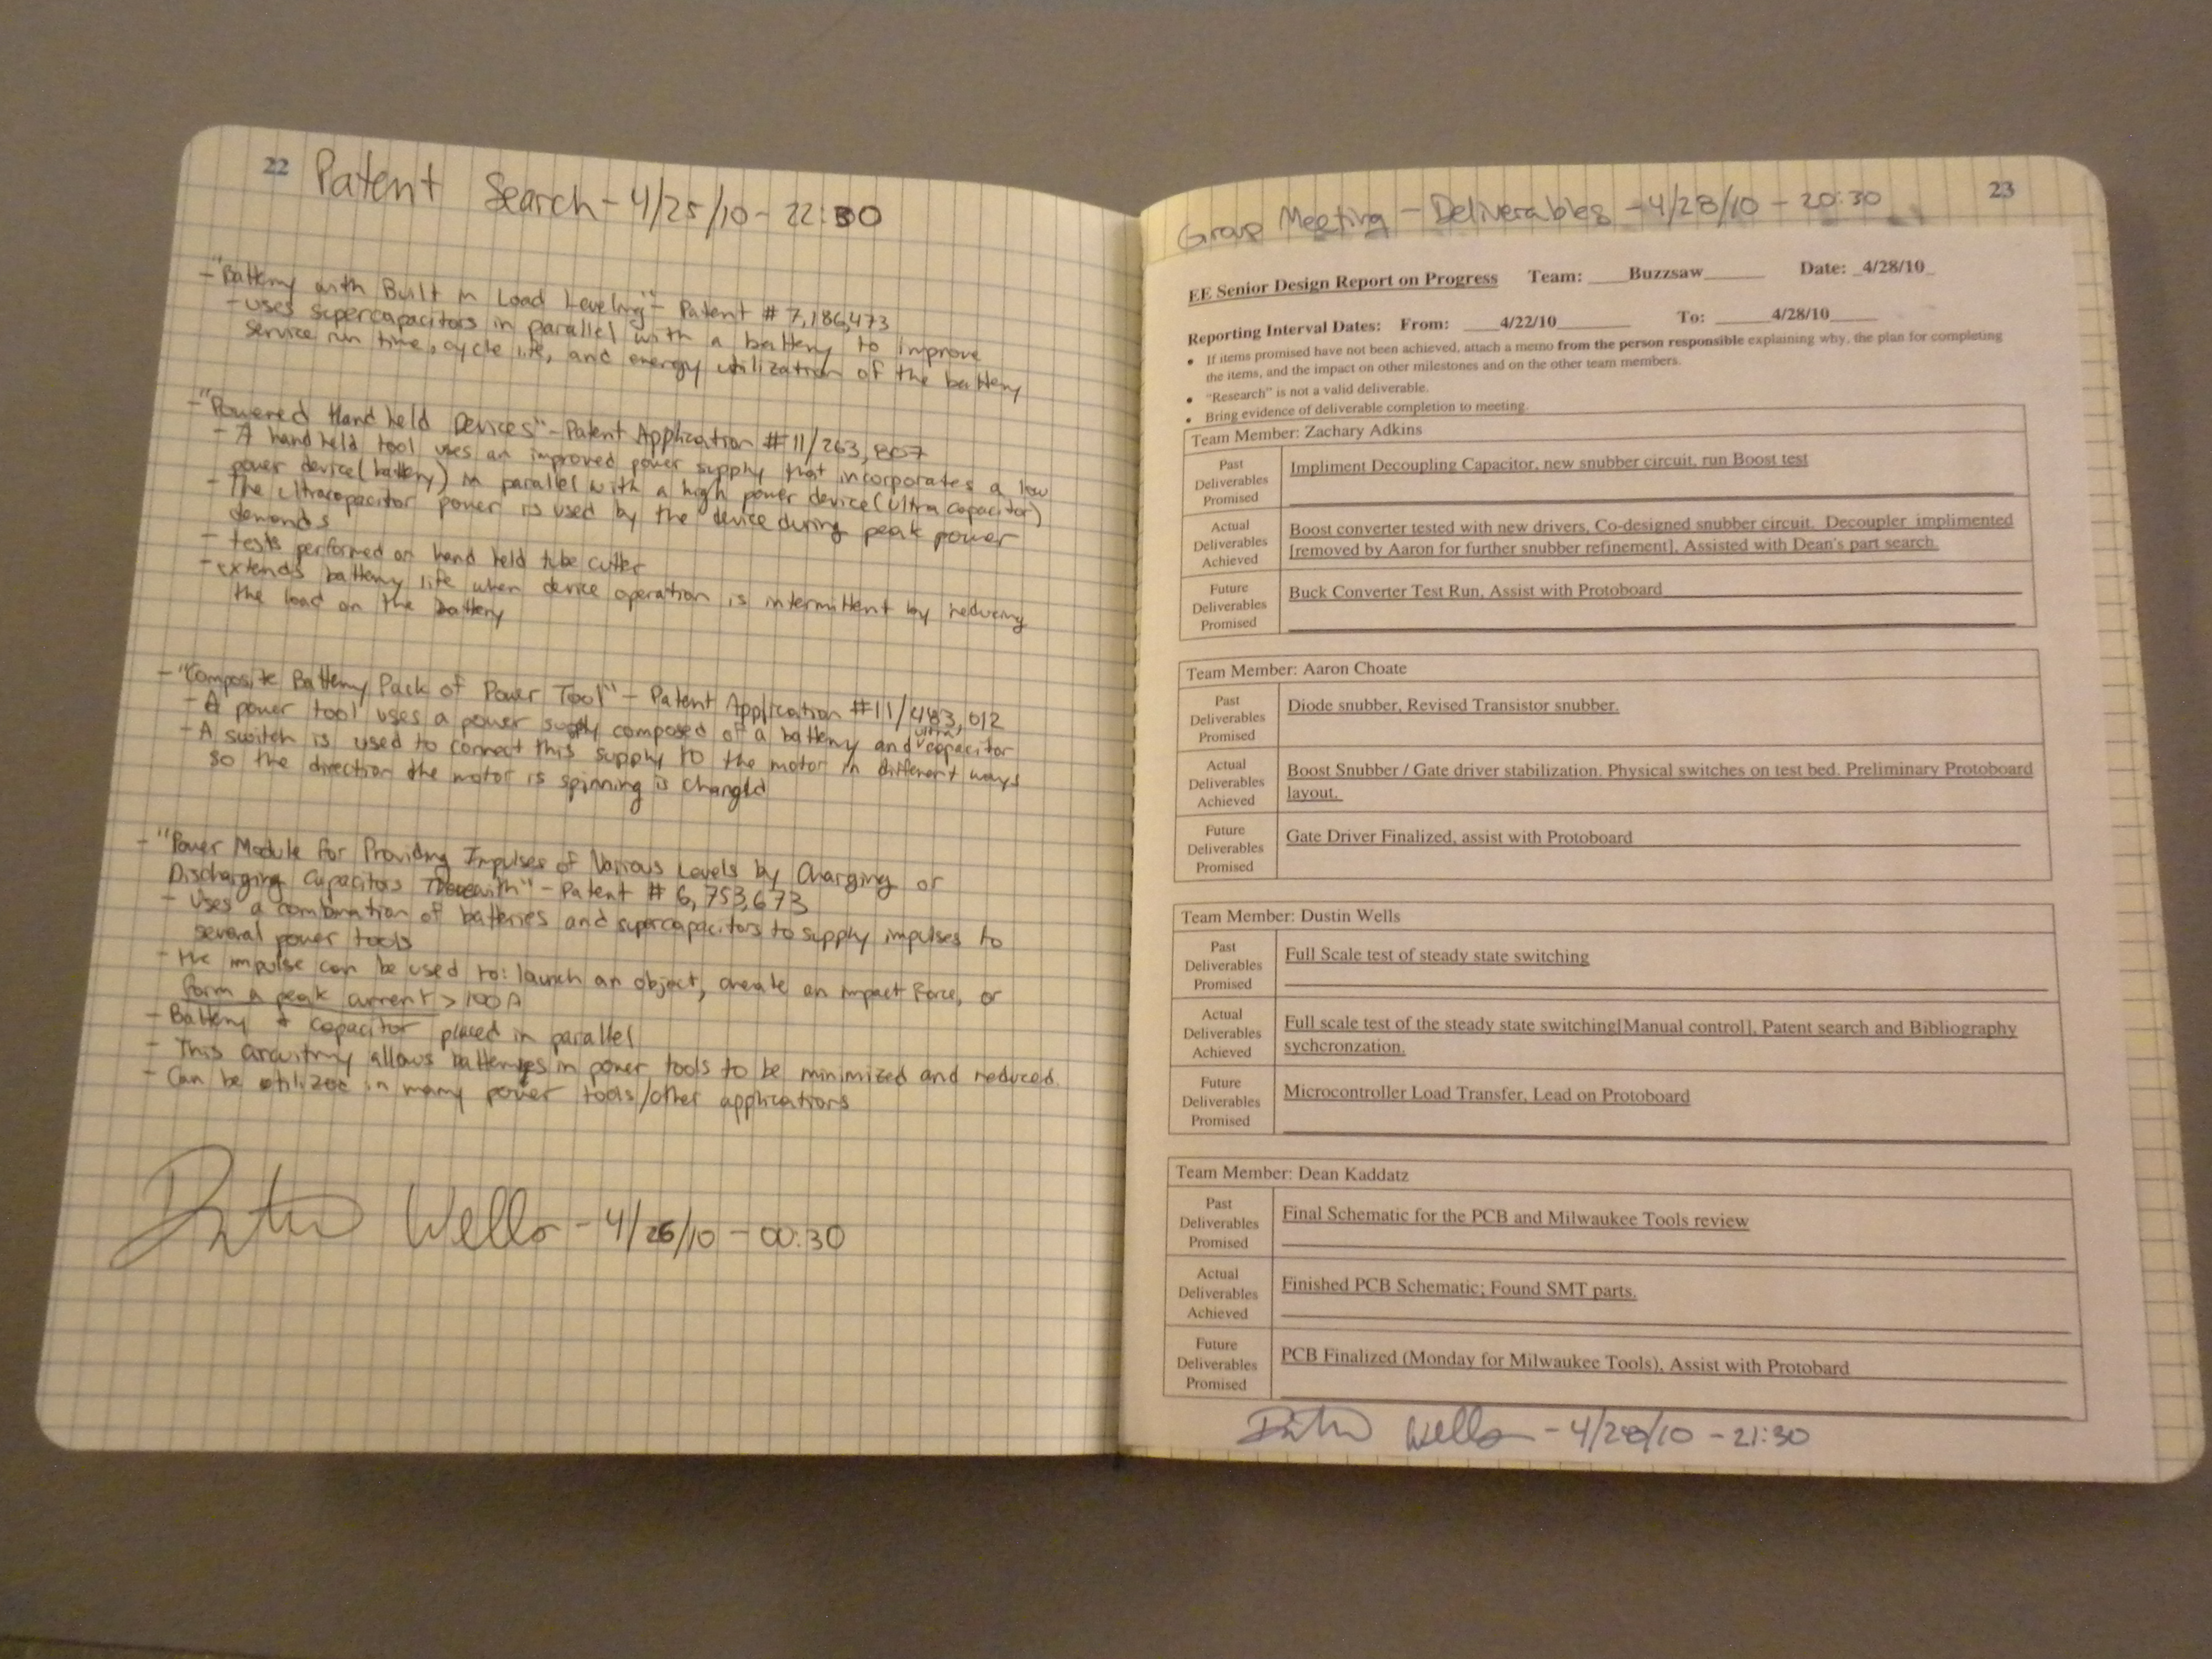 22
Patent Search - 4/25/10 - 22:30
- "Battery with Built in Load Leveling" - Patent # 7,186,473
- uses supercapacitors in parallel with a battery to improve
service run time, cycle life, and energy utilization of the battery
- "Powered Hand held Devices" - Patent Application #11/263,807
- A hand held tool uses an improved power supply that incorporates a low
power device (battery) in parallel with a high power device (Ultra capacitor)
- The Ultracapacitor power is used by the device during peak power
demands
- tests performed on hand held tube cutter
- extends battery life when device operation is intermittent by reducing
the load on the battery
- "Composite Battery Pack of Power Tool" - Patent Application #11/483,012
- A power tool uses a power supply composed of a battery and ultra capacitor
- A switch is used to connect this supply to the motor in different ways
so the direction the motor is spinning is changed
- "Power Module for Providing Impulses of Various Levels by Charging or
Discharging Capacitors Therewith" - Patent # 6,753,673
- Uses a combination of batteries and supercapacitors to supply impulses to
several power tools
- the impulse can be used to: launch an object, create an impact force, or
form a peak current > 100 A
- Battery + capacitor placed in parallel
- This circuitry allows batteries in power tools to be minimized and reduced.
- Can be utilized in many power tools/other applications
Dustin Wells - 4/26/10 - 00:30
23
Group Meeting - Deliverables - 4/28/10 - 20:30
EE Senior Design Report on Progress Team: ____Buzzsaw______ Date: _4/28/10_
Reporting Interval Dates: From: ____4/22/10________ To: ______4/28/10_____
• If items promised have not been achieved, attach a memo from the person responsible explaining why, the plan for completing
the items, and the impact on other milestones and on the other team members.
• "Research" is not a valid deliverable.
• Bring evidence of deliverable completion to meeting.
Team Member: Zachary Adkins
Past
Deliverables
Promised
Impliment Decoupling Capacitor, new snubber circuit, run Boost test
Actual
Deliverables
Achieved
Boost converter tested with new drivers, Co-designed snubber circuit. Decoupler implimented
[removed by Aaron for further snubber refinement], Assisted with Dean's part search.
Future
Deliverables
Promised
Buck Converter Test Run, Assist with Protoboard
Team Member: Aaron Choate
Past
Deliverables
Promised
Diode snubber, Revised Transistor snubber.
Actual
Deliverables
Achieved
Boost Snubber / Gate driver stabilization. Physical switches on test bed. Preliminary Protoboard
layout.
Future
Deliverables
Promised
Gate Driver Finalized, assist with Protoboard
Team Member: Dustin Wells
Past
Deliverables
Promised
Full Scale test of steady state switching
Actual
Deliverables
Achieved
Full scale test of the steady state switching[Manual control], Patent search and Bibliography
sychcronzation.
Future
Deliverables
Promised
Microcontroller Load Transfer, Lead on Protoboard
Team Member: Dean Kaddatz
Past
Deliverables
Promised
Final Schematic for the PCB and Milwaukee Tools review
Actual
Deliverables
Achieved
Finished PCB Schematic; Found SMT parts.
Future
Deliverables
Promised
PCB Finalized (Monday for Milwaukee Tools), Assist with Protobard
Dustin Wells - 4/28/10 - 21:30